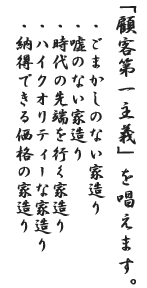 「顧客第一主義」を唱えます。
・ごまかしのない家造り
・嘘のない家造り
・時代の先端を行く家造り
・ハイクオリティーな家造り
・納得できる価格の家造り